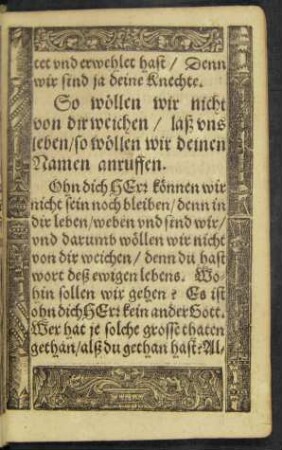 tet vnd erwehlet hast / Denn
wir sind ja deine Knechte.
So wöllen wir nicht
von dir weichen / laß vns
leben / so wöllen wir deinen
Namen anruffen.
Ohn dich HErr können wir
nicht sein noch bleiben / denn in
dir leben / weben vnd sind wir /
vnd darumb wöllen wir nicht
von dir weichen / denn du hast
wort deß ewigen lebens. Wo
hin sollen wir gehen? Es ist
ohn dich HErr kein ander Gott.
Wer hat je solche grosse thaten
gethan / alß du gethan hast? Al-